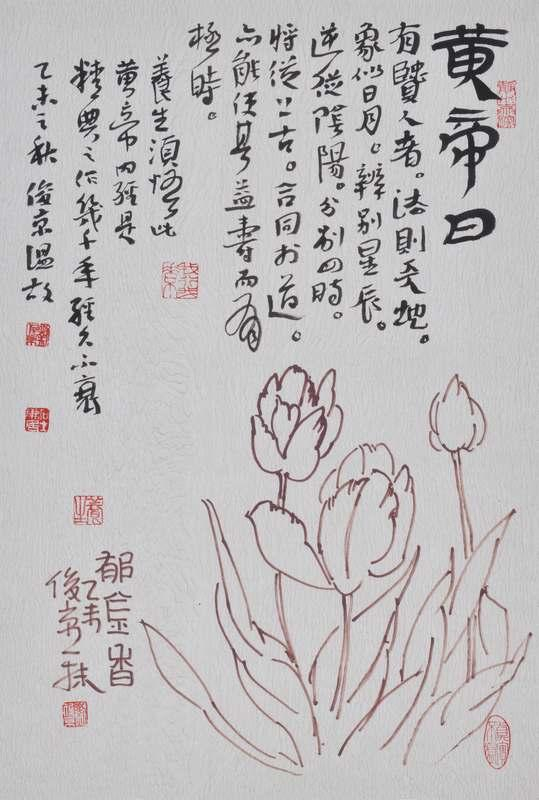 黄帝曰
有賢人者。法則天地。
象似日月。辨别星辰。
逆從陰陽。分别四時。
將從上古。合同於道。
亦能使其益壽而有
極時。
養生須悟此
黄帝内經是
精典之作幾千年經久不衰
乙未之秋 俊京温故
郁金香
乙未
俊京一抹